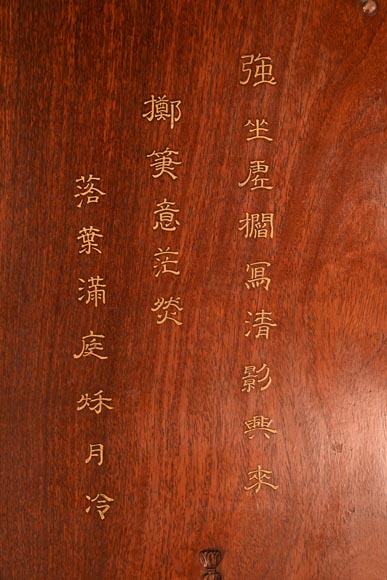 強坐虛櫚寫清影興來
擲筆意茫然
落葉滿庭秌月冷